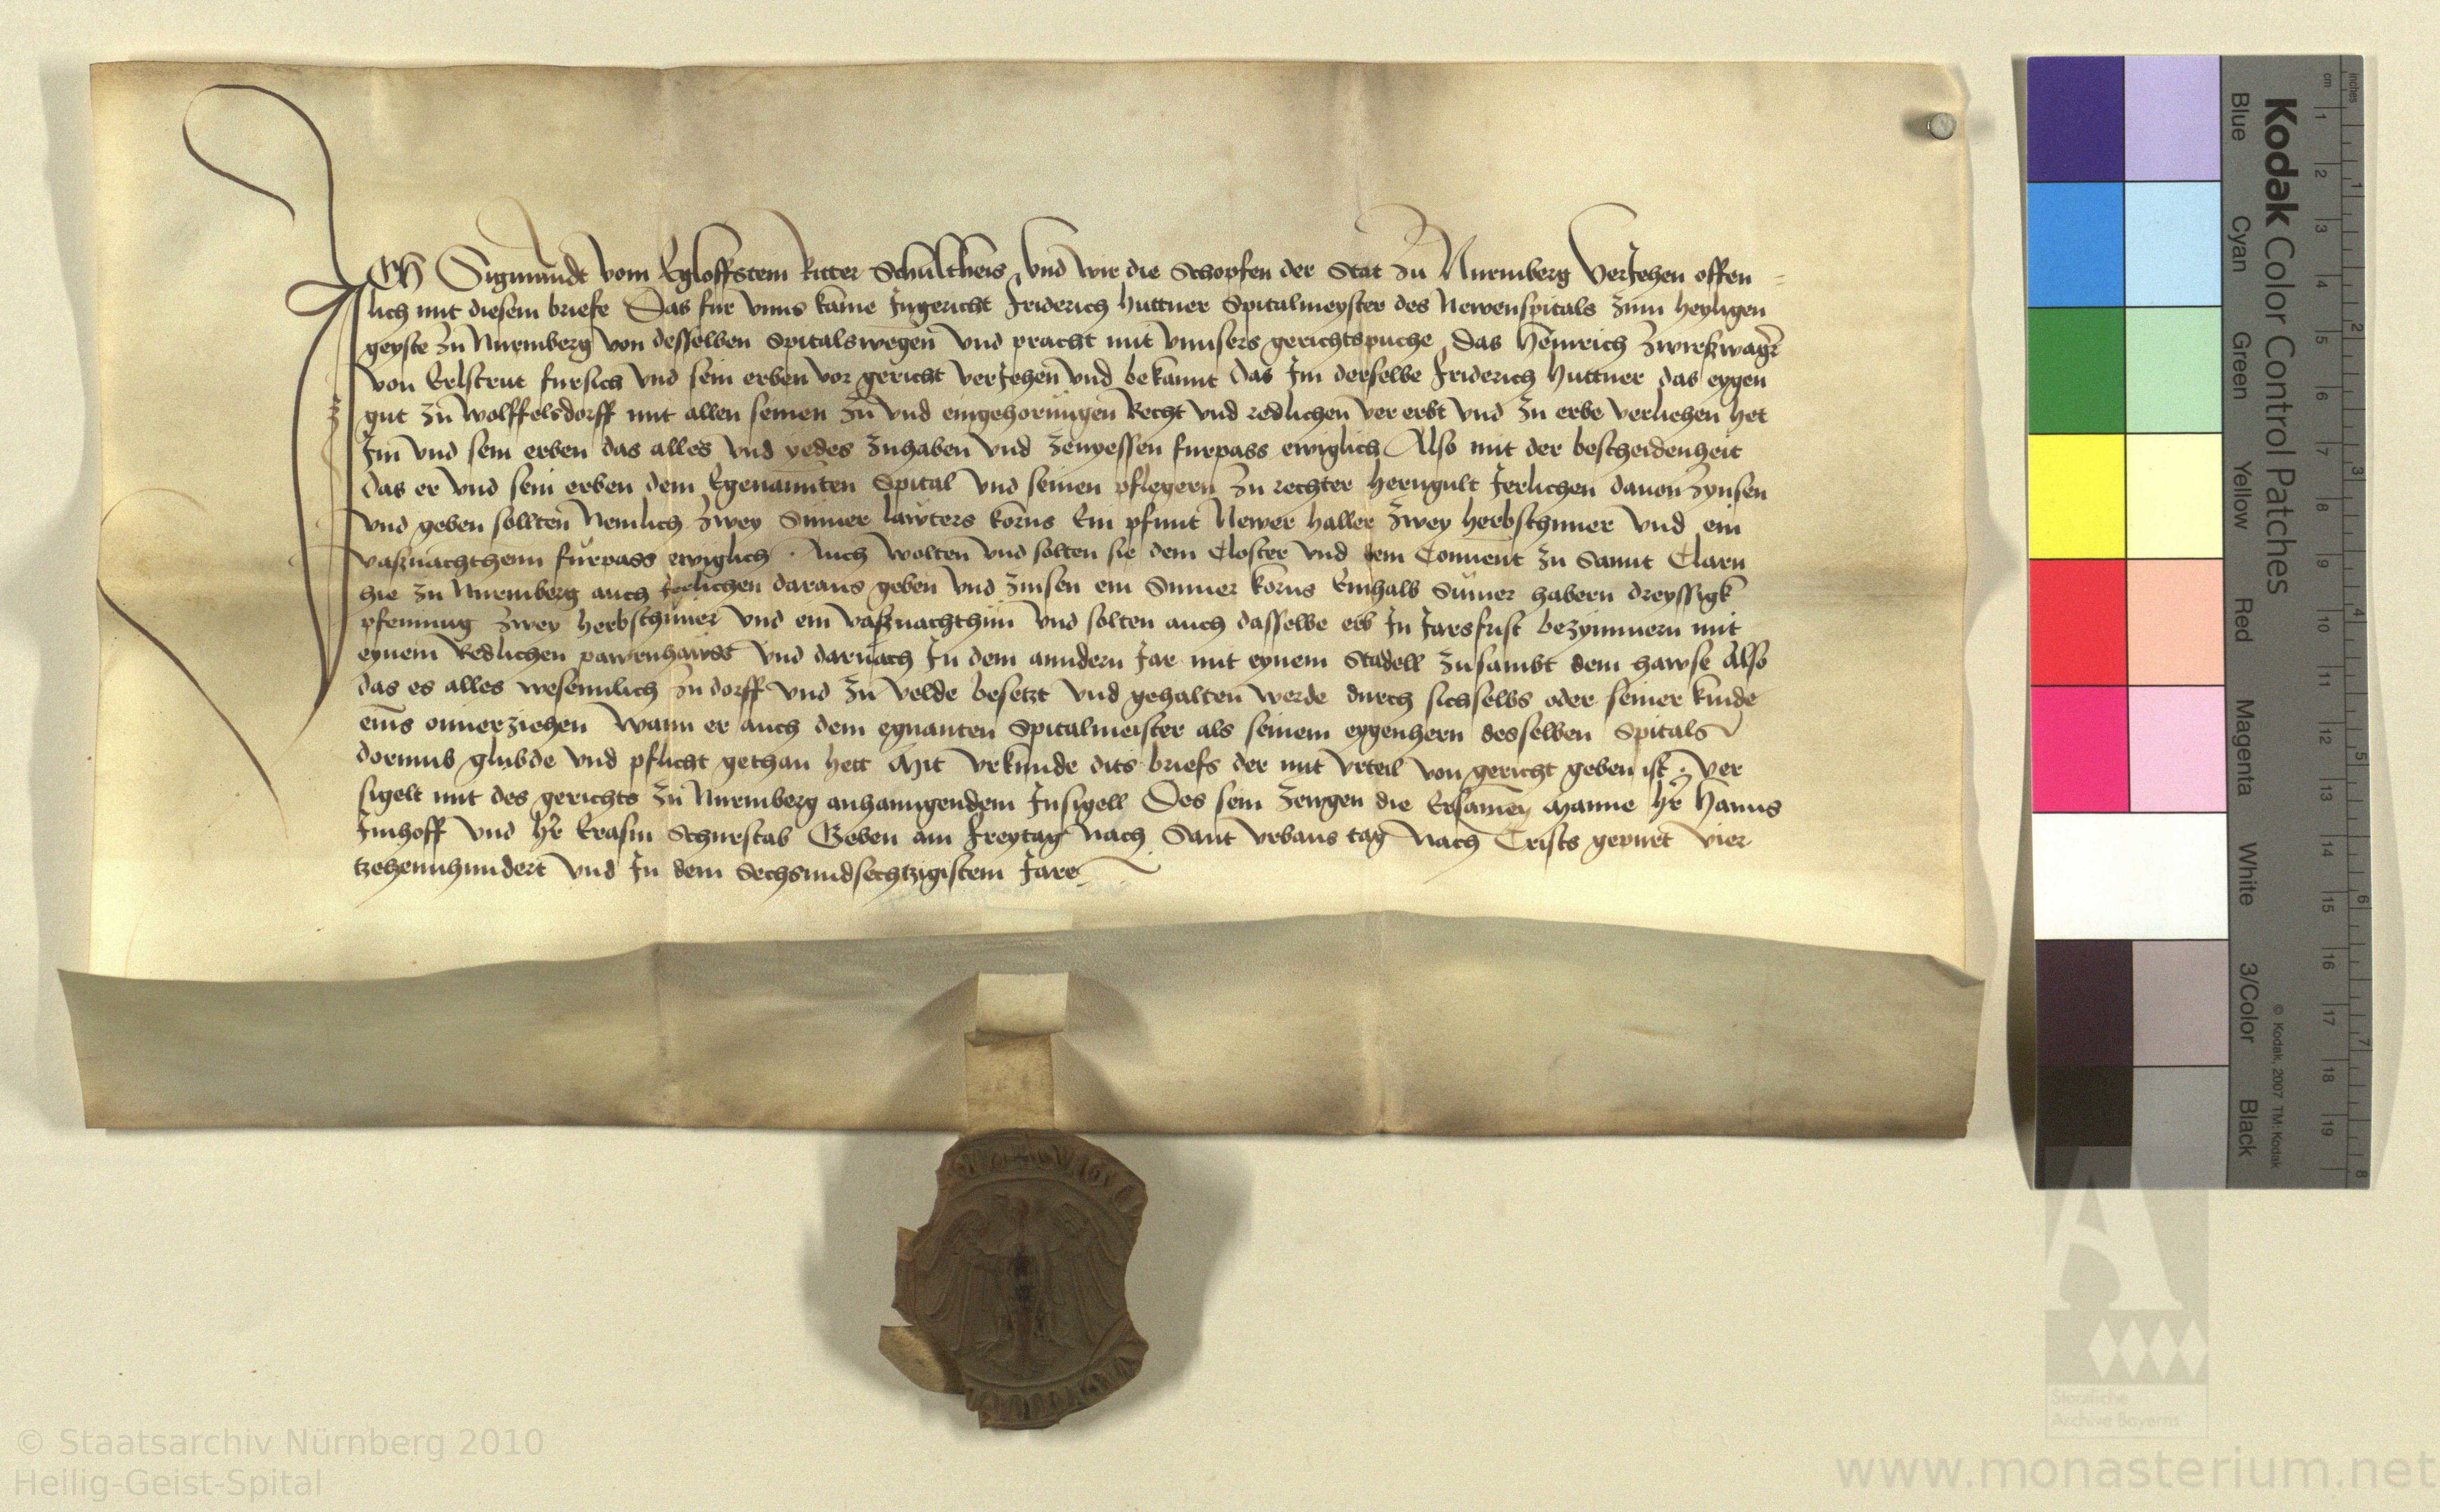 ICH Sigmundt vom Egloffstein Ritter Schultheis vnd wir die Schopfen der Stat zu Nuremberg Veriehen offen
lich mit diesem briefe Das fur vnns kame Ingericht Friderich huttner Spitalmeyster des Newenspitals zum heyligen
geyste zu Nuremberg von desselben Spitalswegen vnd pracht mit vnnsers gerichtspuche das Heinrich
von Erlstent fursich vnd sein erben vor gericht veriehen vnd bekannt das Im derselbe Friderich huttner das eygen
gut zu wolffelsdorff mit allen seinen zu vnd eingehorungen Recht vnd redlichen ver erbt vnd zu erbe verliehen het
Im vnd sein erben das alles vnd yedes zuhaben vnd zenyessen furpass ewiglich Also mit der bescheidenheit
das er vnd sein erben dem Egenannten Spital vnd seinen pflegern zu rechter herngult Jerlichen dauon zynsen
vnd geben sollten Nemlich zwey Sumer lawters korns Ein pfunt Newer haller zwey herbsthuner vnd ein
vaßnachthenn furpass ewiglich . Auch wolten vnd solten sie dem Closter vnd dem Conuent zu Sannt Clarn
hie zu Nuremberg auch Jerlichen daraus geben vnd zinsen ein Sumer korns Einhalb Sumer habern dreyssigk
pfenning zwey herbsthuner vnd ein vaßnachthun vnd solten auch dasselbe erb In Jarsfrist bezymmern mit
eynem Redlichen pawrnhawss vnd darnach In dem anndern Jare mit eynem Stadell zusambt dem hawse Also
das es alles wesennlich zu dorff vnd zu velde besetzt vnd gehalten werde durch sichselbs oder seiner kinde
eins onuerziehen Wann er auch dem egnanten Spitalmeister als seinem eygenhern desselben Spitals
dorumb glubde vnd pflicht gethan hett Mit vrkunde dits briefs der mit vrteil von gericht geben ist . ver
sigelt mit des gerichts zu Nuremberg anhanngendem Insigell Des sein zeugen die Ersamen manne hr Hanns
Imhoff vnd hr Erasm Schurstab Geben am Freytag nach Sant vrbans tag Nach Cristi gepurt vier
tzehennhundert vnd In dem Sechsundsechtzigistem Jare
Kodak Color Control Patches
Blue Cyan Green Yellow Red Magenta White 3/Color Black
© Kodak, 2007 TM: Kodak
inches
1 2 3 4 5 6 7 8
cm
1 2 3 4 5 6 7 8 9 10 11 12 13 14 15 16 17 18 19
Staatliche
Archive Bayerns
© Staatsarchiv Nürnberg 2010
Heilig-Geist-Spital
www.monasterium.net